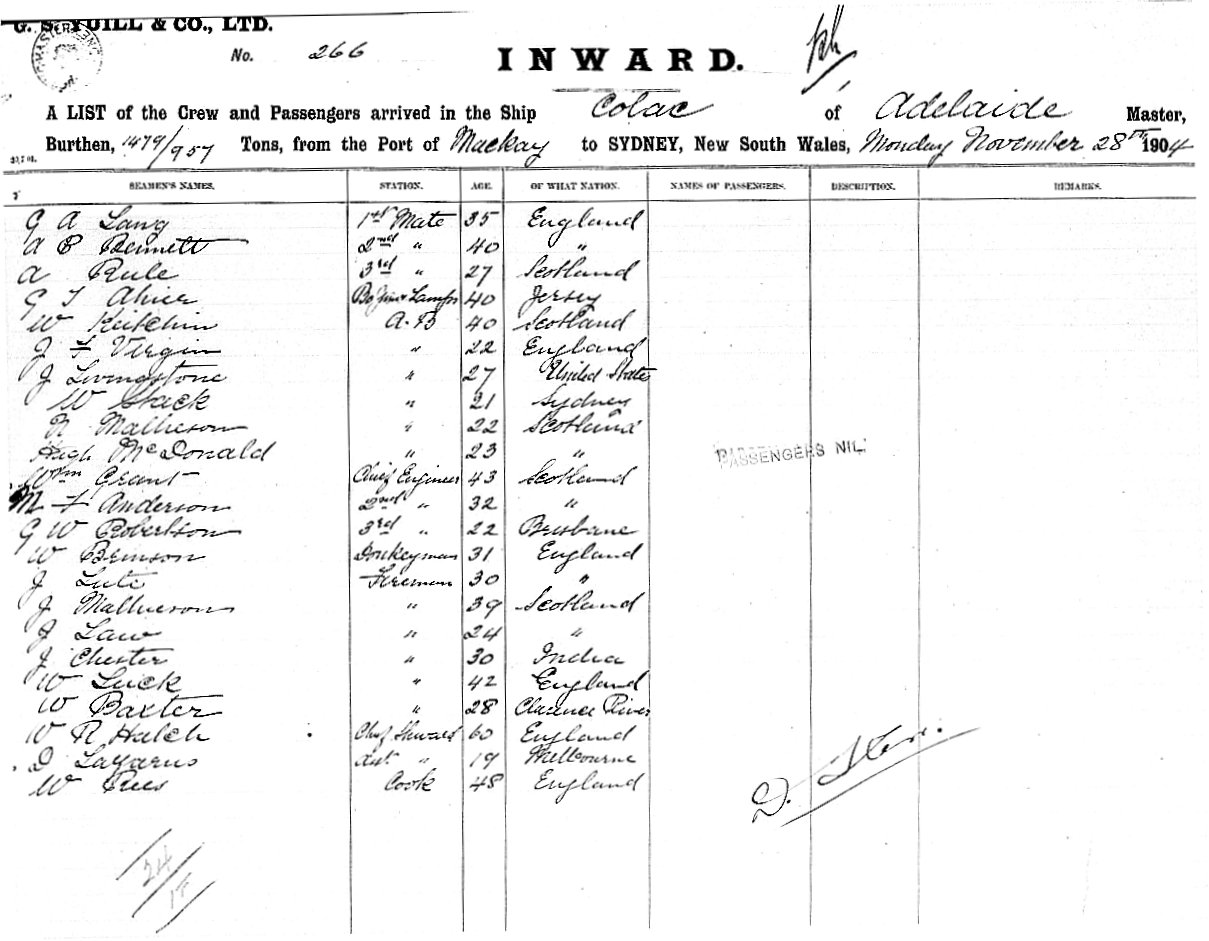 G. S. YUILL & CO., LTD.
No. 266
INWARD.
A LIST of the Crew and Passengers arrived in the Ship Colac of Adelaide Master,
Burthen, 1479/957 Tons, from the Port of Mackay to SYDNEY, New South Wales, Monday November 28th 1904
SEAMEN'S NAMES. STATION. AGE. OF WHAT NATION. NAMES OF PASSENGERS. DESCRIPTION. REMARKS.
G A Lang 1st Mate 35 England
A B Bennett 2nd " 40 "
A Rule 3rd " 27 Scotland
G T 40 Jersey
W Keitchin A.B 40 Scotland
J F Virgin " 22 England
J Livingstone " 27 United State
W Stack " 21 Sydney
N Mathieson " 22 Scotland
Hugh McDonald " 23 "
Wm Grant Chief Engineer 43 Scotland
M F Anderson 2nd " 32 "
G W Robertson 3rd " 22 Brisbane
W Brinson Donkeyman 31 England
J Fireman 30 "
J Mathieson " 39 Scotland
J Law " 24 "
J Chester " 30 India
W Luck " 42 England
W Baxter " 28 Clarence River
W R Hatch Chief Steward 60 England
D Lazarus Asst " 19 Melbourne
W Rees Cook 48 England
PASSENGERS NIL.
24